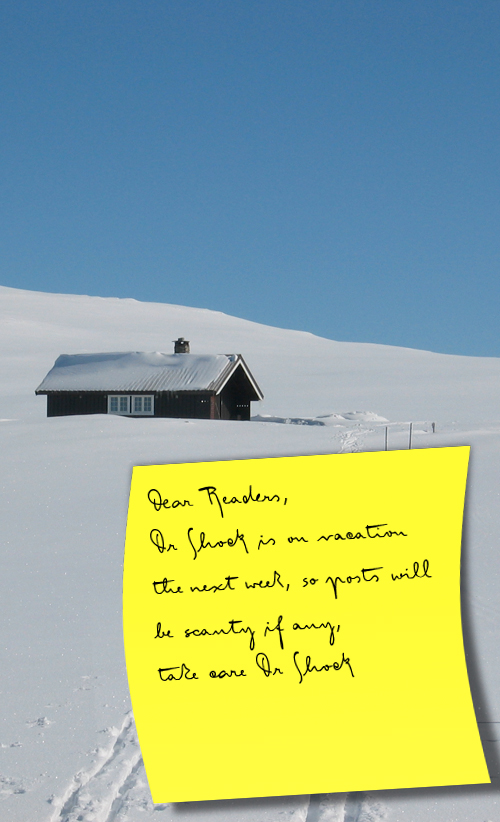 Dear Readers,
Dr Shock is on vacation
the next week, so posts will
be scanty if any,
take care Dr Shock